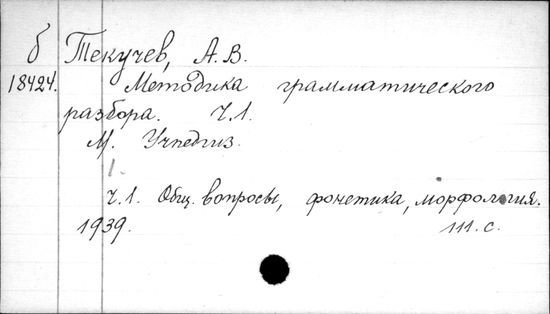 б Текучев, А.В.
18424. Методика грамматического
разбора. Ч.1.
М. Учпедгиз.
1.
Ч.1. Общ. вопросы, фонетика, морфология.
1939. 111.с.